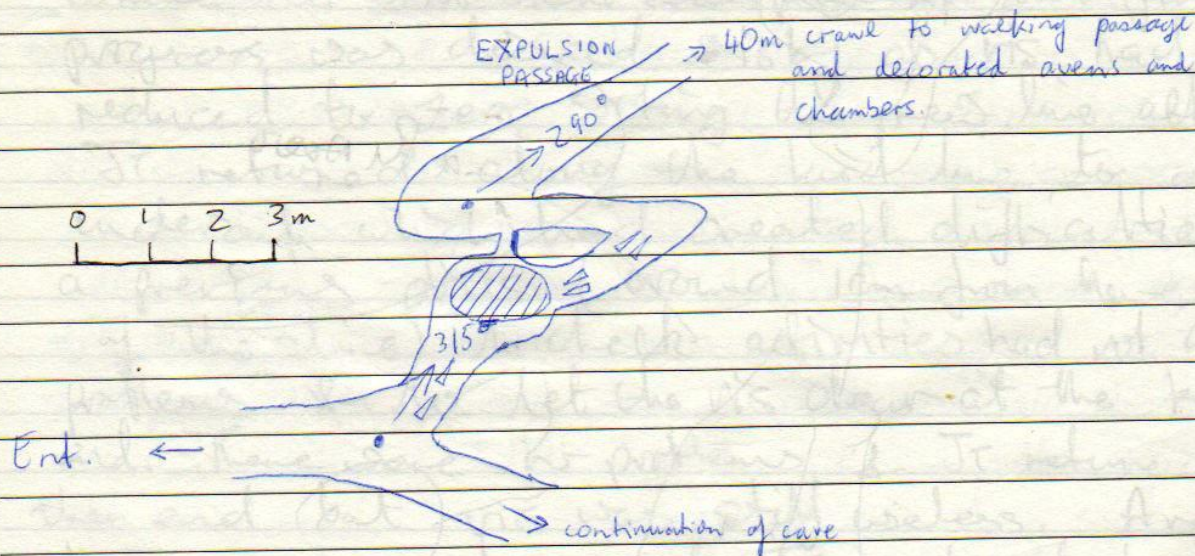 EXPULSION
PASSAGE
40m crawl to walking passage
and decorated avens and
chambers.
290°
0 1 2 3m
315
Ent.
continuation of cave